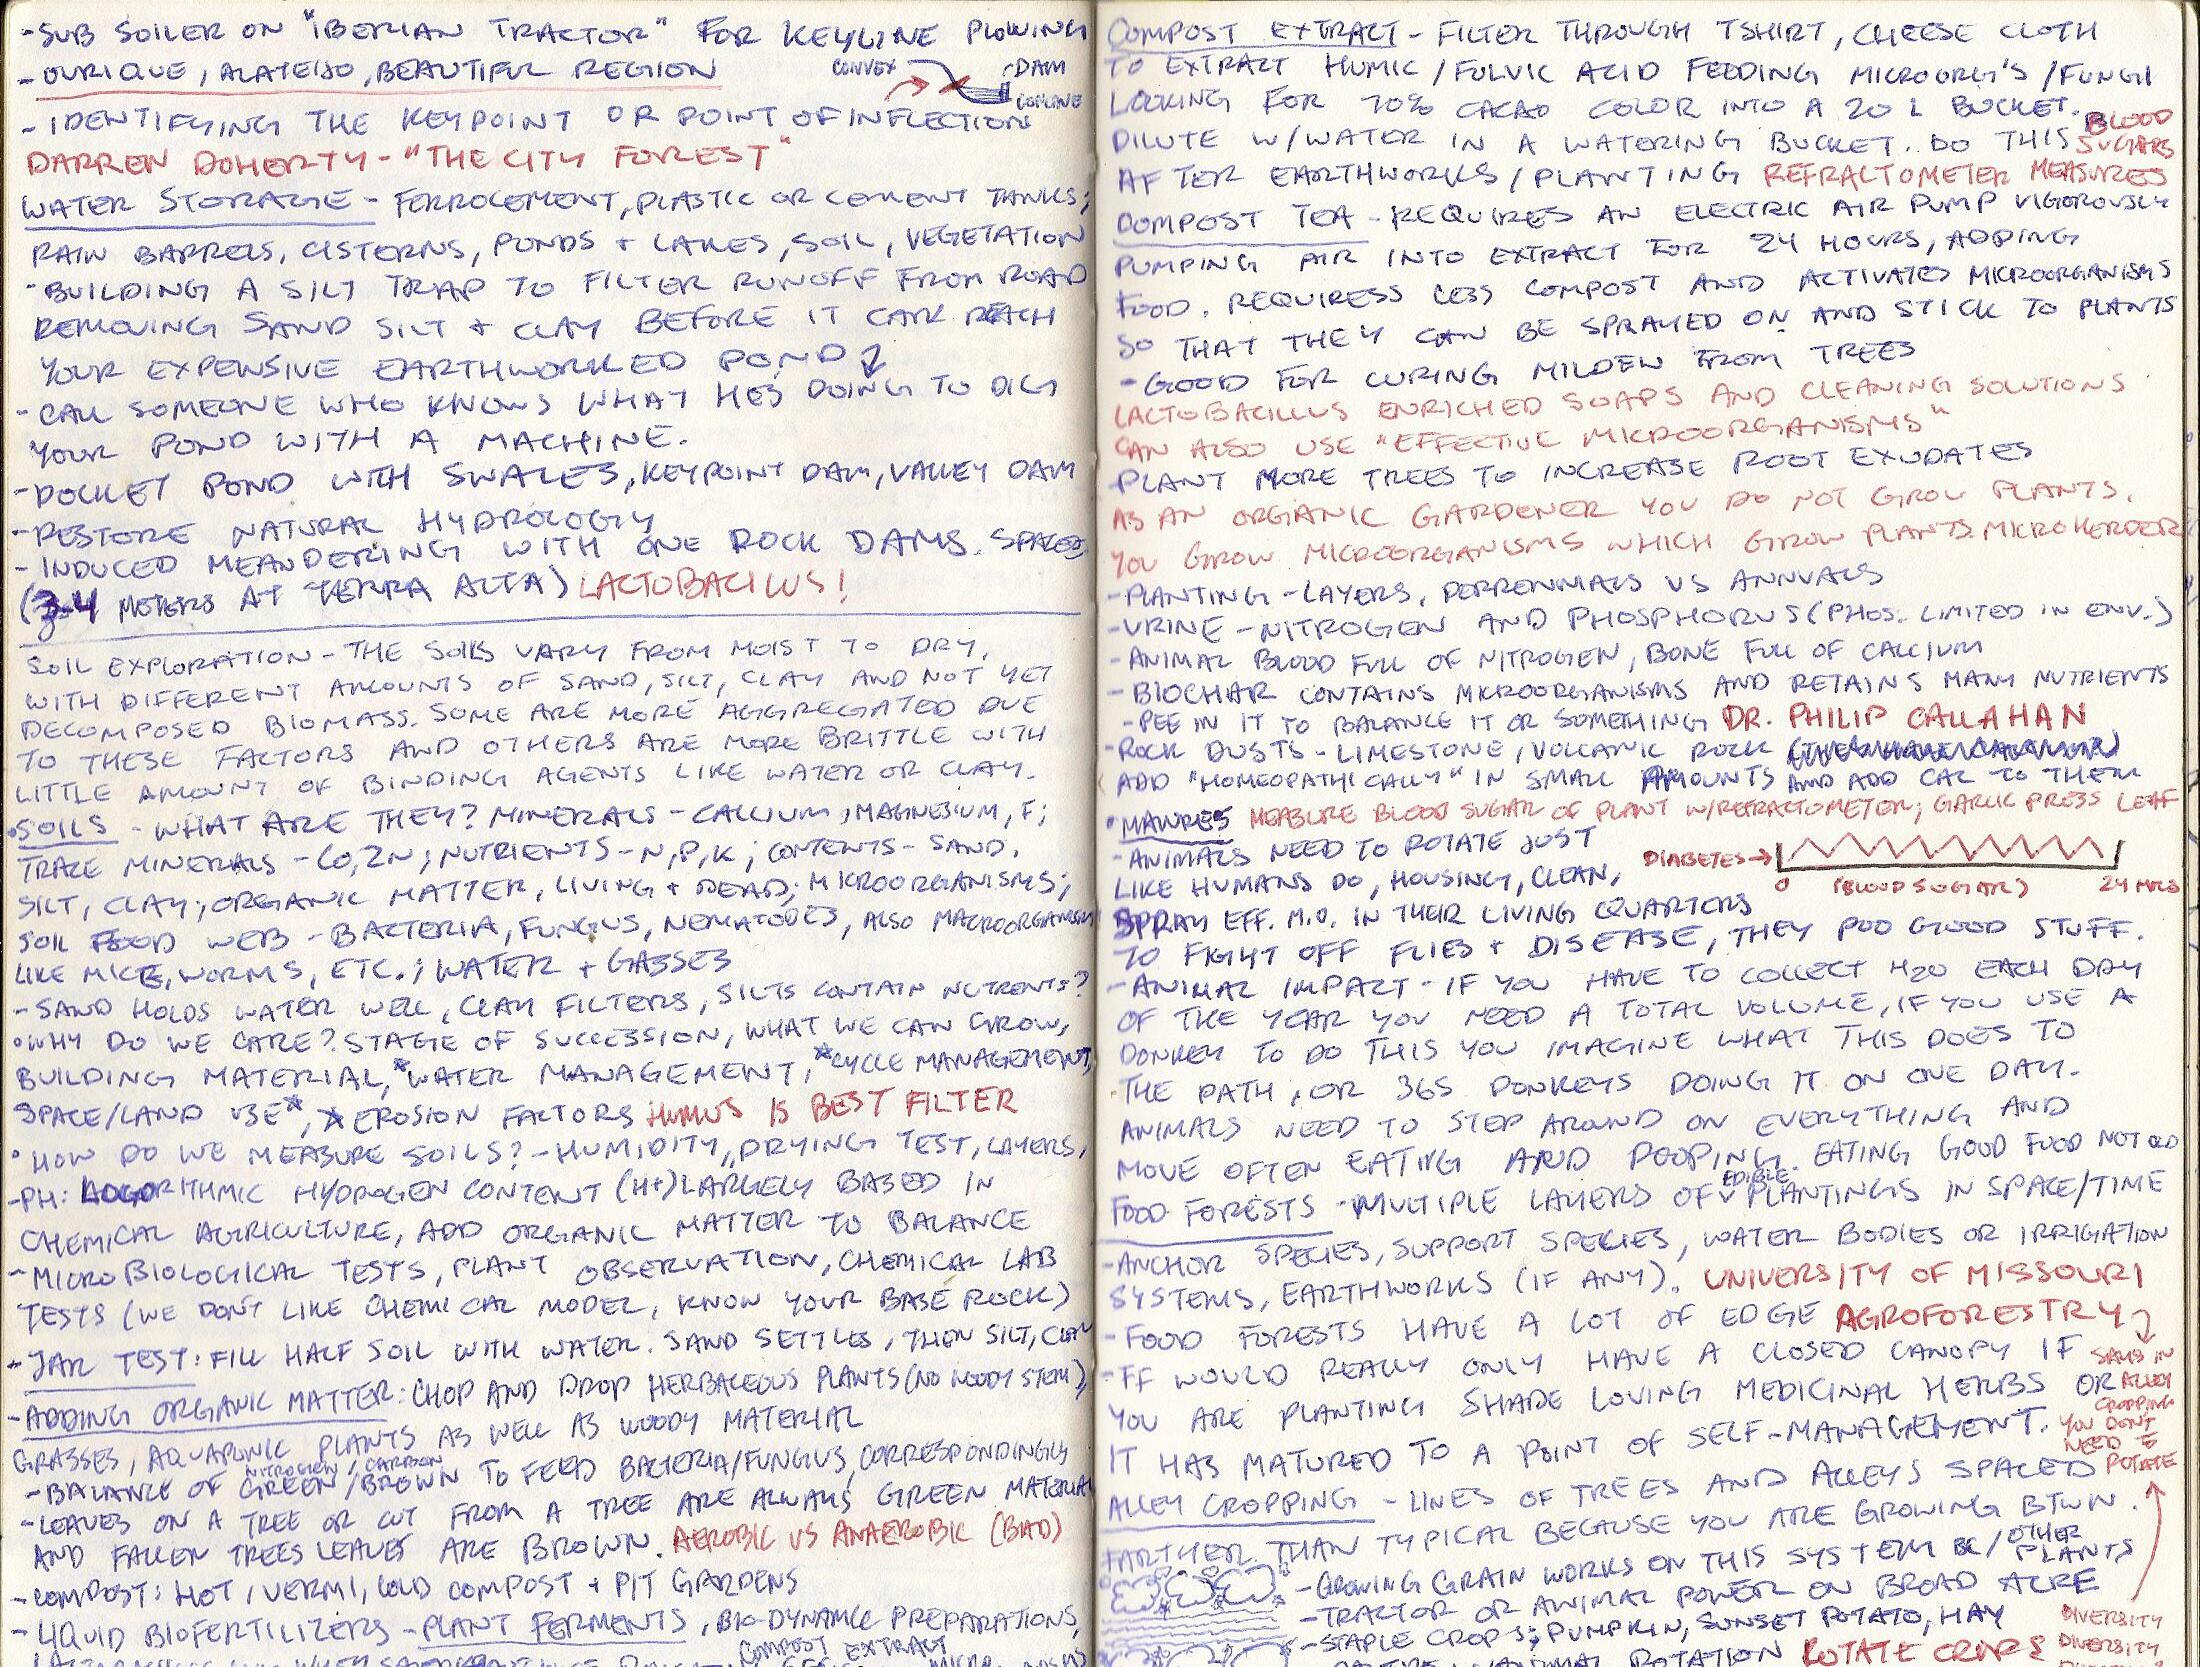 -SUB SOILER ON "IBERIAN TRACTOR" FOR KEYLINE PLOWING
-OURIQUE, ALATEIJO, BEAUTIFUL REGION
CONVEX
DAM
-IDENTIFYING THE KEYPOINT OR POINT OF INFLECTION
DARREN DOHERTY - "THE CITY FOREST"
WATER STORAGE - FERROCEMENT, PLASTIC OR CEMENT TANKS;
RAIN BARRELS, CISTERNS, PONDS + LAKES, SOIL, VEGETATION
-BUILDING A SILT TRAP TO FILTER RUNOFF FROM ROAD
REMOVING SAND SILT + CLAY BEFORE IT CAN REACH
YOUR EXPENSIVE EARTHWORKED POND
-CALL SOMEONE WHO KNOWS WHAT HE'S DOING TO DIG
YOUR POND WITH A MACHINE.
-POCKET POND WITH SWALES, KEYPOINT DAM, VALLEY DAM
-RESTORE NATURAL HYDROLOGY
-INDUCED MEANDERING WITH ONE ROCK DAMS. SPACED
(3-4 METERS AT TERRA ALTA) LACTOBACILUS!
SOIL EXPLORATION - THE SOILS VARY FROM MOIST TO DRY,
WITH DIFFERENT AMOUNTS OF SAND, SILT, CLAY AND NOT YET
DECOMPOSED BIOMASS. SOME ARE MORE AGGREGATED DUE
TO THESE FACTORS AND OTHERS ARE MORE BRITTLE WITH
LITTLE AMOUNT OF BINDING AGENTS LIKE WATER OR CLAY.
•SOILS - WHAT ARE THEY? MINERALS - CALCIUM, MAGNESIUM, F;
TRACE MINERALS - CO, ZN; NUTRIENTS - N, P, K; CONTENTS - SAND,
SILT, CLAY; ORGANIC MATTER, LIVING + DEAD; MICROORGANISMS;
SOIL FOOD WEB - BACTERIA, FUNGUS, NEMATODES, ALSO MACROORGANISMS
LIKE MICE, WORMS, ETC.; WATER + GASSES
-SAND HOLDS WATER WELL, CLAY FILTERS, SILTS CONTAIN NUTRENTS?
•WHY DO WE CARE? STAGE OF SUCCESSION, WHAT WE CAN GROW,
BUILDING MATERIAL, *WATER MANAGEMENT, *CYCLE MANAGEMENT,
SPACE/LAND USE*, *EROSION FACTORS HUMUS IS BEST FILTER
•HOW DO WE MEASURE SOILS? - HUMIDITY, DRYING TEST, LAYERS,
-PH: LOGORITHMIC HYDROGEN CONTENT (H+) LARGELY BASED IN
CHEMICAL AGRICULTURE, ADD ORGANIC MATTER TO BALANCE
-MICROBIOLOGICAL TESTS, PLANT OBSERVATION, CHEMICAL LAB
TESTS (WE DON'T LIKE CHEMICAL MODEL, KNOW YOUR BASE ROCK)
-JAR TEST: FILL HALF SOIL WITH WATER. SAND SETTLES, THEN SILT, CLAY
-ADDING ORGANIC MATTER: CHOP AND DROP HERBACEOUS PLANTS (NO WOODY STEM),
GRASSES, AQUAPONIC PLANTS AS WELL AS WOODY MATERIAL
NITROGEN / CARBON
-BALANCE OF GREEN/BROWN TO FEED BACTERIA/FUNGUS, CORRESPONDINGLY
-LEAVES ON A TREE OR CUT FROM A TREE ARE ALWAYS GREEN MATERIAL
AND FALLEN TREES LEAVES ARE BROWN. AEROBIC VS ANAEROBIC (BAD)
-COMPOST: HOT, VERMI, COLD COMPOST + PIT GARDENS
-LIQUID BIOFERTILIZERS - PLANT FERMENTS, BIO-DYNAMIC PREPARATIONS,
COMPOST EXTRACT
COMPOST EXTRACT - FILTER THROUGH TSHIRT, CHEESE CLOTH
TO EXTRACT HUMIC/FULVIC ACID FEEDING MICROORG'S/FUNGI
LOOKING FOR 70% CACAO COLOR INTO A 20 L BUCKET.
DILUTE W/WATER IN A WATERING BUCKET. DO THIS BLOOD SUGARS
AFTER EARTHWORKS/PLANTING REFRACTOMETER MEASURES
COMPOST TEA - REQUIRES AN ELECTRIC AIR PUMP VIGOROUSLY
PUMPING AIR INTO EXTRACT FOR 24 HOURS, ADDING
FOOD. REQUIRESS LESS COMPOST AND ACTIVATES MICROORGANISMS
SO THAT THEY CAN BE SPRAYED ON AND STICK TO PLANTS
-GOOD FOR CURING MILDEW FROM TREES
LACTOBACILLUS ENRICHED SOAPS AND CLEANING SOLUTIONS
CAN ALSO USE "EFFECTIVE MICROORGANISMS"
-PLANT MORE TREES TO INCREASE ROOT EXUDATES
AS AN ORGANIC GARDENER YOU DO NOT GROW PLANTS.
YOU GROW MICROORGANISMS WHICH GROW PLANTS. MICROHERDER
-PLANTING - LAYERS, PERRENNIALS VS ANNUALS
-URINE - NITROGEN AND PHOSPHORUS (PHOS. LIMITED IN ENV.)
-ANIMAL BLOOD FULL OF NITROGEN, BONE FULL OF CALCIUM
-BIOCHAR CONTAINS MICROORGANISMS AND RETAINS MANY NUTRIENTS
-PEE IN IT TO BALANCE IT OR SOMETHING DR. PHILIP CALLAHAN
-ROCK DUSTS - LIMESTONE, VOLCANIC ROCK
ADD "HOMEOPATHICALLY" IN SMALL AMOUNTS AND ADD CAL TO THEM
•MANURES MEASURE BLOOD SUGAR OF PLANT W/REFRACTOMETER; GARLIC PRESS LEAF
-ANIMALS NEED TO ROTATE JUST
DIABETES→
LIKE HUMANS DO, HOUSING, CLEAN,
0 (BLOOD SUGAR) 24 HRS
SPRAY EFF. M.O. IN THEIR LIVING QUARTERS
TO FIGHT OFF FLIES + DISEASE, THEY POO GOOD STUFF.
-ANIMAL IMPACT - IF YOU HAVE TO COLLECT H2O EACH DAY
OF THE YEAR YOU NEED A TOTAL VOLUME, IF YOU USE A
DONKEY TO DO THIS YOU IMAGINE WHAT THIS DOES TO
THE PATH, OR 365 DONKEYS DOING IT ON ONE DAY.
ANIMALS NEED TO STEP AROUND ON EVERYTHING AND
MOVE OFTEN EATING AND POOPING. EATING GOOD FOOD NOT OLD
EDIBLE
FOOD FORESTS - MULTIPLE LAYERS OF PLANTINGS IN SPACE/TIME
-ANCHOR SPECIES, SUPPORT SPECIES, WATER BODIES OR IRRIGATION
SYSTEMS, EARTHWORKS (IF ANY). UNIVERSITY OF MISSOURI
-FOOD FORESTS HAVE A LOT OF EDGE AGROFORESTRY
-FF WOULD REALLY ONLY HAVE A CLOSED CANOPY IF
YOU ARE PLANTING SHADE LOVING MEDICINAL HERBS OR
IT HAS MATURED TO A POINT OF SELF-MANAGEMENT.
SAYS IN
ALLEY
CROPPING
YOU DON'T
NEED TO
ROTATE
ALLEY CROPPING - LINES OF TREES AND ALLEYS SPACED
FARTHER THAN TYPICAL BECAUSE YOU ARE GROWING BTWN.
-GROWING GRAIN WORKS ON THIS SYSTEM BC/OTHER PLANTS
-TRACTOR OR ANIMAL POWER ON BROAD ACRE
-STAPLE CROPS: PUMPKIN, SUNSET POTATO, HAY
DIVERSITY
ROTATION ROTATE CROPS
DIVERSITY